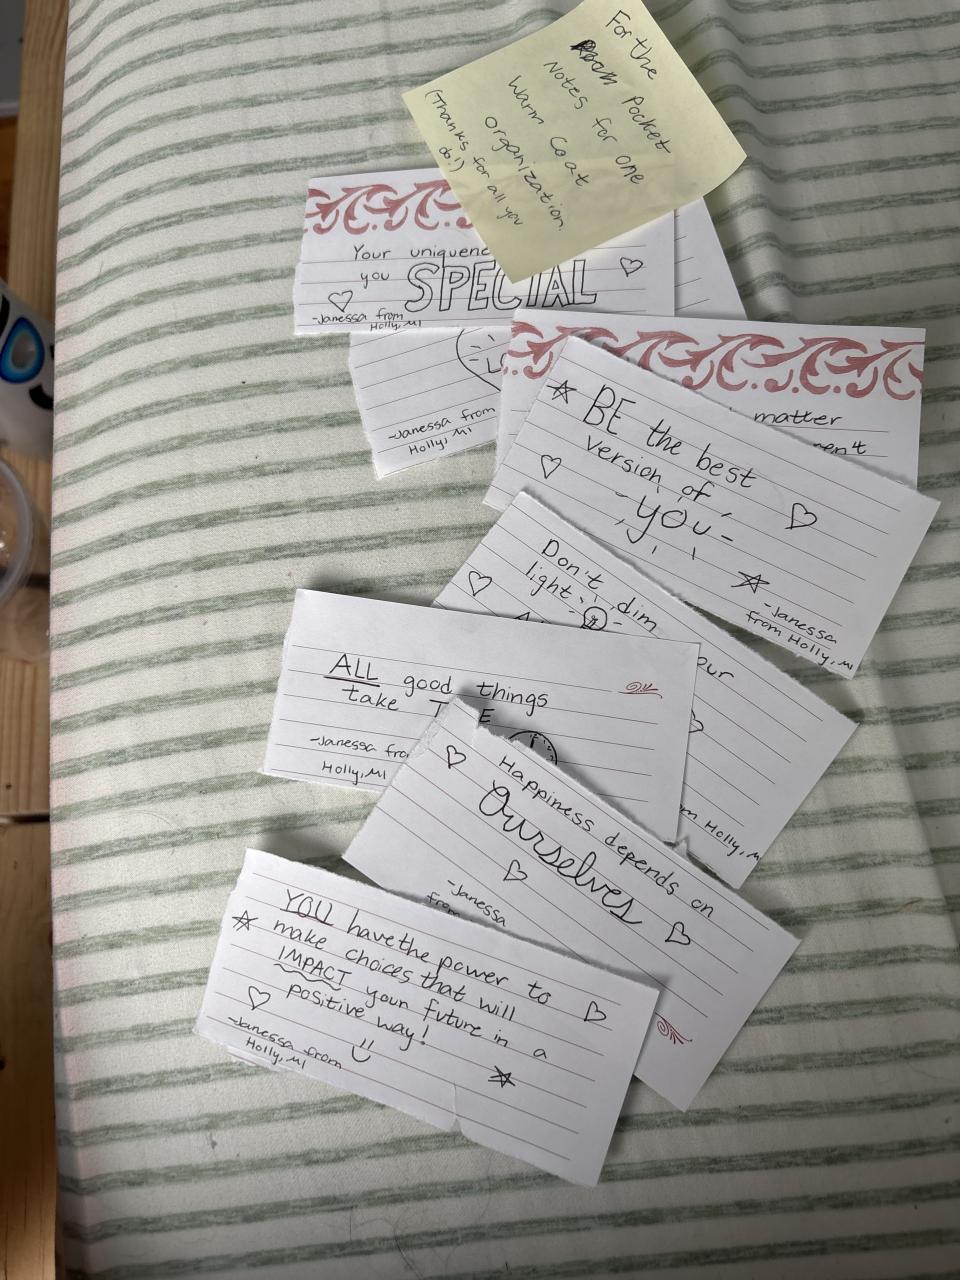 For the
Pocket
Notes for one
Warm Coat
organization.
(Thanks for all you
do!)
Your
you SPECIAL
-Janessa from
Holly, MI
-Janessa from
Holly, MI
matter
BE the best
version of
YOU
-Janessa
from Holly, MI
Don't dim
light
Holly, M
ALL good things
take
-Janessa
Holly, MI
Happiness depends on
Ourselves
-Janessa
from
YOU have the power to
make choices that will
IMPACT your future in a
positive way!
-Janessa from
Holly, MI